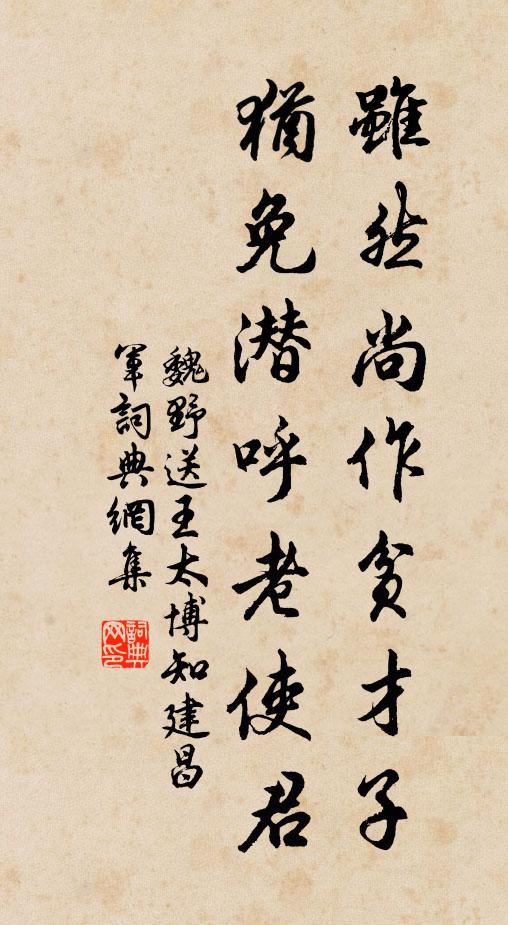 雖然尚作貧才子
猶免潜呼老使君
魏野送王太博知建昌
軍詞典網集
詞典网印